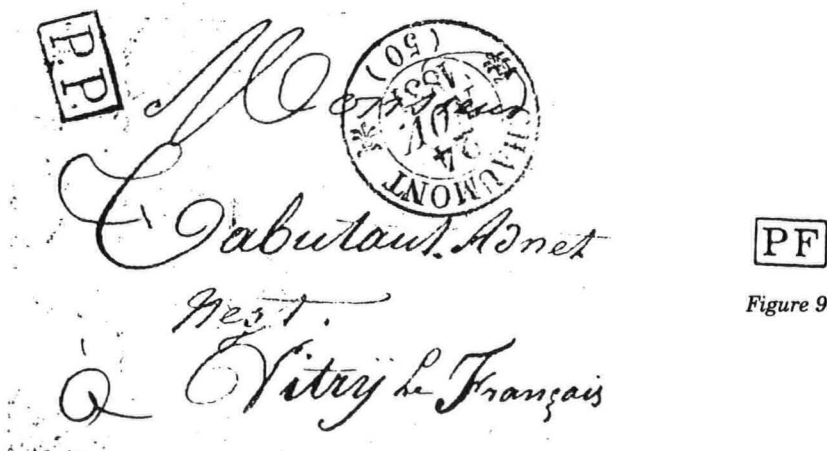 P.P.
CHAUMONT (50)
24
1831
Monsieur
Cabutaut. Adnet
Negt.
à
Vitry le Français
PF
Figure 9